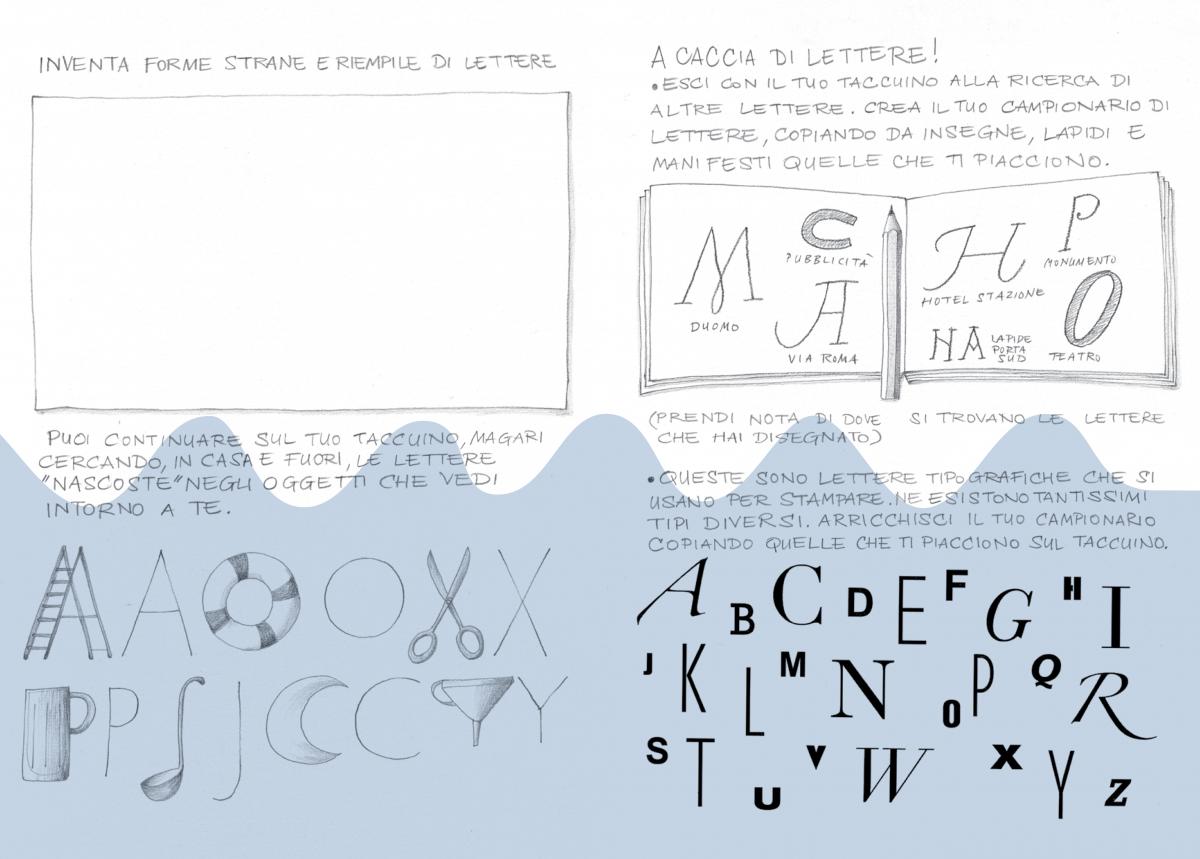 INVENTA FORME STRANE E RIEMPILE DI LETTERE
PUOI CONTINUARE SUL TUO TACCUINO, MAGARI
CERCANDO, IN CASA E FUORI, LE LETTERE
"NASCOSTE" NEGLI OGGETTI CHE VEDI
INTORNO A TE.
A A O O X X
P P J J C C Y Y
A CACCIA DI LETTERE!
•ESCI CON IL TUO TACCUINO ALLA RICERCA DI
ALTRE LETTERE. CREA IL TUO CAMPIONARIO DI
LETTERE, COPIANDO DA INSEGNE, LAPIDI E
MANIFESTI QUELLE CHE TI PIACCIONO.
M
DUOMO
C
PUBBLICITÀ
A
VIA ROMA
H
HOTEL STAZIONE
P
MONUMENTO
NA
LAPIDE
PORTA
SUD
O
TEATRO
(PRENDI NOTA DI DOVE SI TROVANO LE LETTERE
CHE HAI DISEGNATO)
•QUESTE SONO LETTERE TIPOGRAFICHE CHE SI
USANO PER STAMPARE. NE ESISTONO TANTISSIMI
TIPI DIVERSI. ARRICCHISCI IL TUO CAMPIONARIO
COPIANDO QUELLE CHE TI PIACCIONO SUL TACCUINO.
A B C D E F G H I
J K L M N O P Q R
S T U V W X Y Z